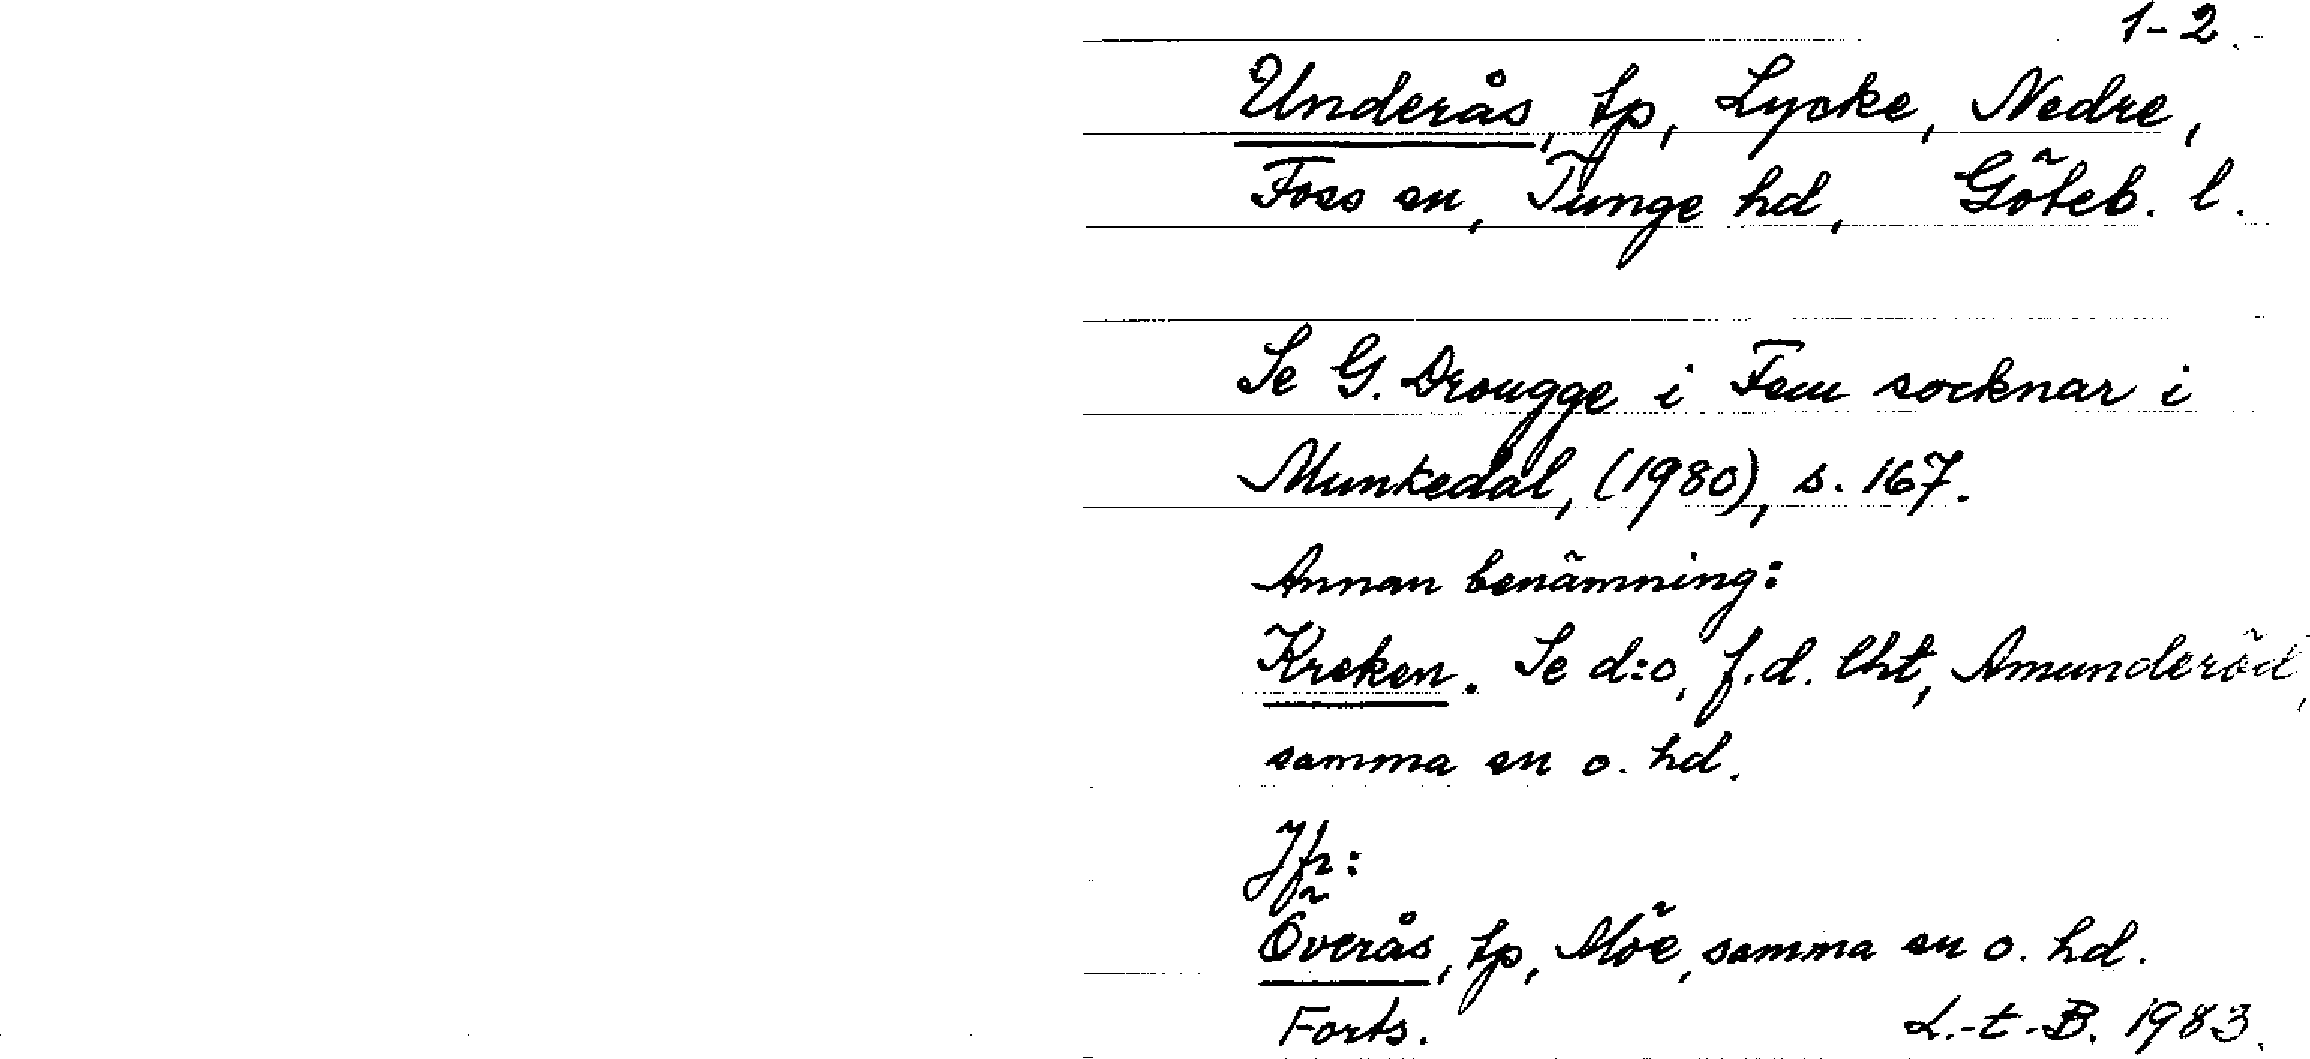 1-2.
Underås, tp, Lycke, Nedre,
Foss sn, Tunge hd, Göteb. l.
Se G. Drougge i Fem socknar i
Munkedal, (1980), s. 167.
Annan benämning:
Kreken. Se d:o, f.d. lht, Amunderöd,
samma sn o. hd.
Jfr:
Överås, tp, Möe, samma sn o. hd.
Forts. L.-t.-B. 1983.